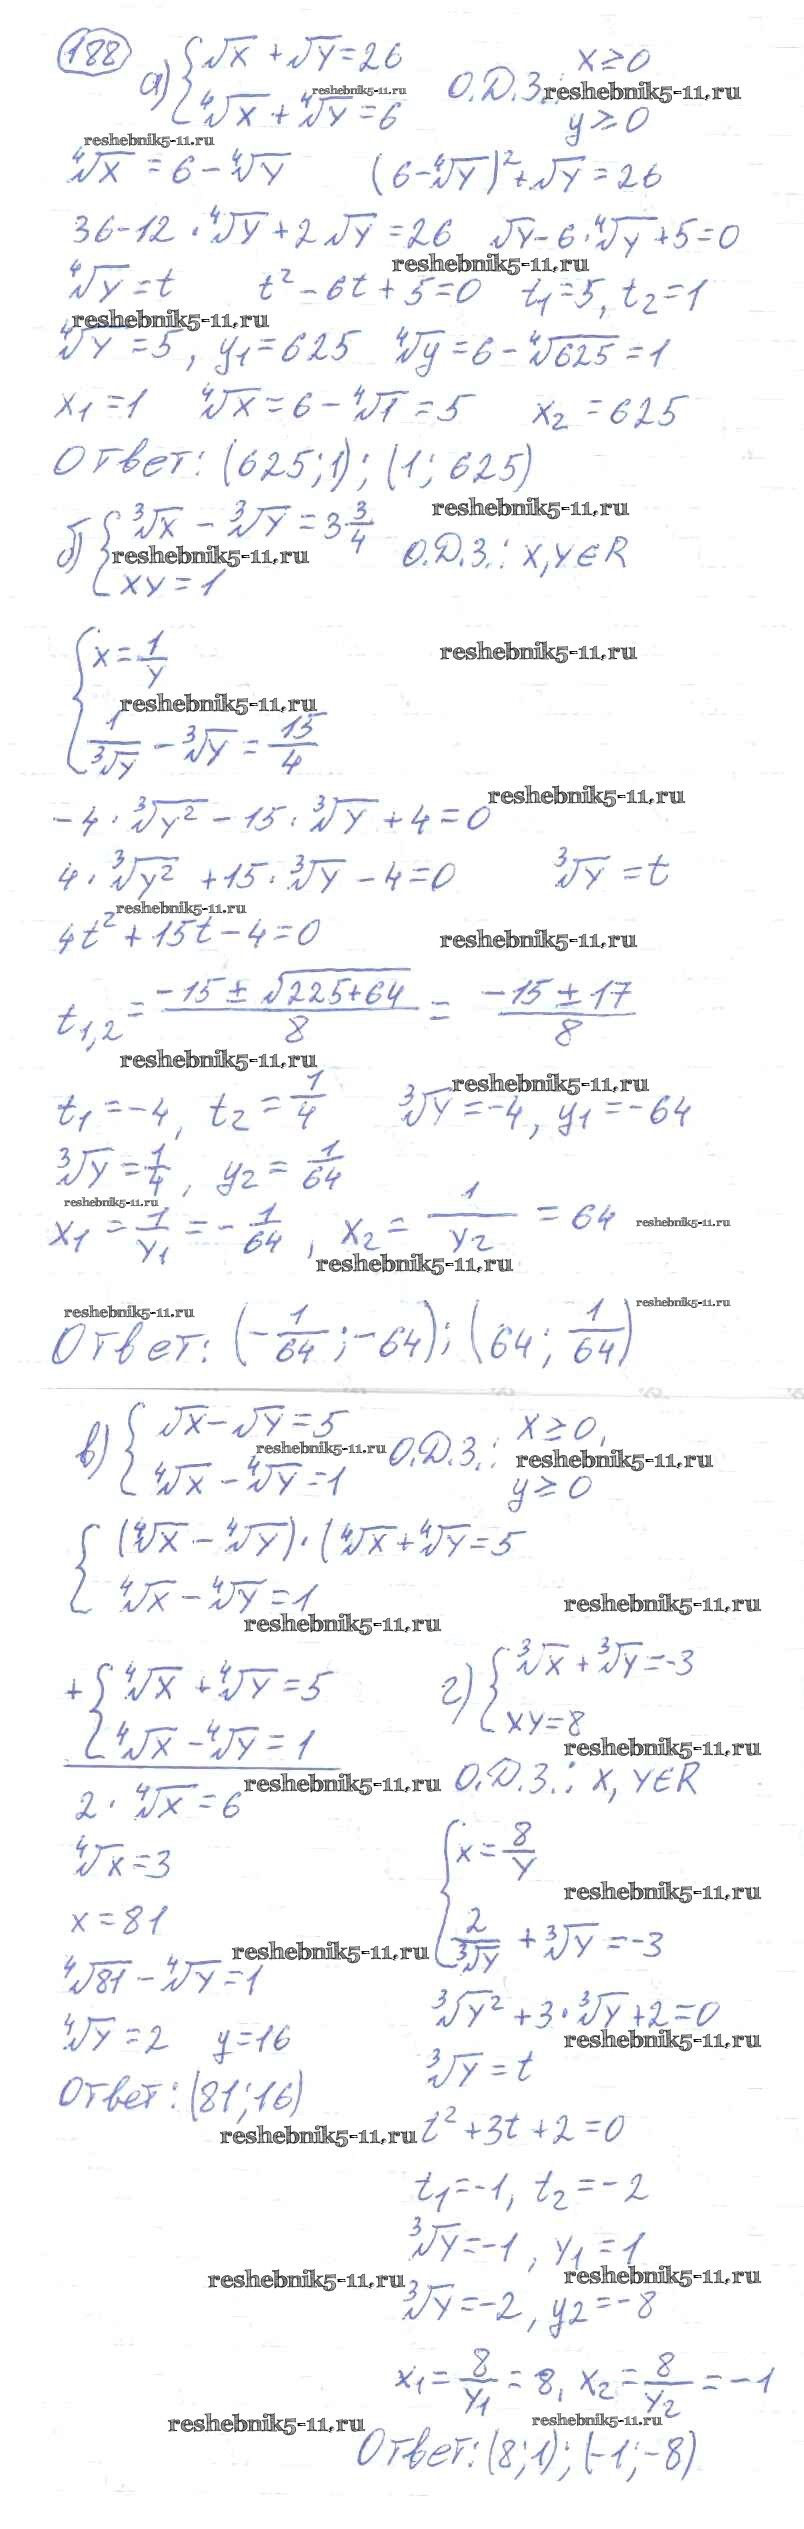 188
а) { √x + √y = 26
⁴√x + ⁴√y = 6
О.Д.З.: x ≥ 0
y ≥ 0
⁴√x = 6 - ⁴√y (6 - ⁴√y)² + √y = 26
36 - 12 · ⁴√y + 2√y = 26 √y - 6 · ⁴√y + 5 = 0
⁴√y = t t² - 6t + 5 = 0 t₁ = 5, t₂ = 1
⁴√y = 5, y₁ = 625 ⁴√y = 6 - ⁴√625 = 1
x₁ = 1 ⁴√x = 6 - ⁴√1 = 5 x₂ = 625
Ответ: (625; 1); (1; 625)
б) { ³√x - ³√y = 3 3/4
xy = 1
О.Д.З.: x, y ∈ R
{ x = 1/y
1/³√y - ³√y = 15/4
-4 · ³√y² - 15 · ³√y + 4 = 0
4 · ³√y² + 15 · ³√y - 4 = 0 ³√y = t
4t² + 15t - 4 = 0
t₁,₂ = (-15 ± √225+64)/8 = (-15 ± 17)/8
t₁ = -4, t₂ = 1/4 ³√y = -4, y₁ = -64
³√y = 1/4, y₂ = 1/64
x₁ = 1/y₁ = -1/64, x₂ = 1/y₂ = 64
Ответ: (-1/64; -64); (64; 1/64)
в) { √x - √y = 5
⁴√x - ⁴√y = 1
О.Д.З.: x ≥ 0,
y ≥ 0
{ (⁴√x - ⁴√y) · (⁴√x + ⁴√y = 5
⁴√x - ⁴√y = 1
+ { ⁴√x + ⁴√y = 5
⁴√x - ⁴√y = 1
2 · ⁴√x = 6
⁴√x = 3
x = 81
⁴√81 - ⁴√y = 1
⁴√y = 2 y = 16
Ответ: (81; 16)
г) { ³√x + ³√y = -3
xy = 8
О.Д.З.: x, y ∈ R
{ x = 8/y
2/³√y + ³√y = -3
³√y² + 3 · ³√y + 2 = 0
³√y = t
t² + 3t + 2 = 0
t₁ = -1, t₂ = -2
³√y = -1, y₁ = 1
³√y = -2, y₂ = -8
x₁ = 8/y₁ = 8, x₂ = 8/y₂ = -1
Ответ: (8; 1); (-1; -8)
reshebnik5-11.ru